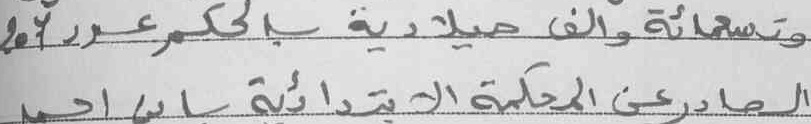 وتسعمائة والف ميلادية بالحكم عدد
الصادر عن المحكمة الابتدائية